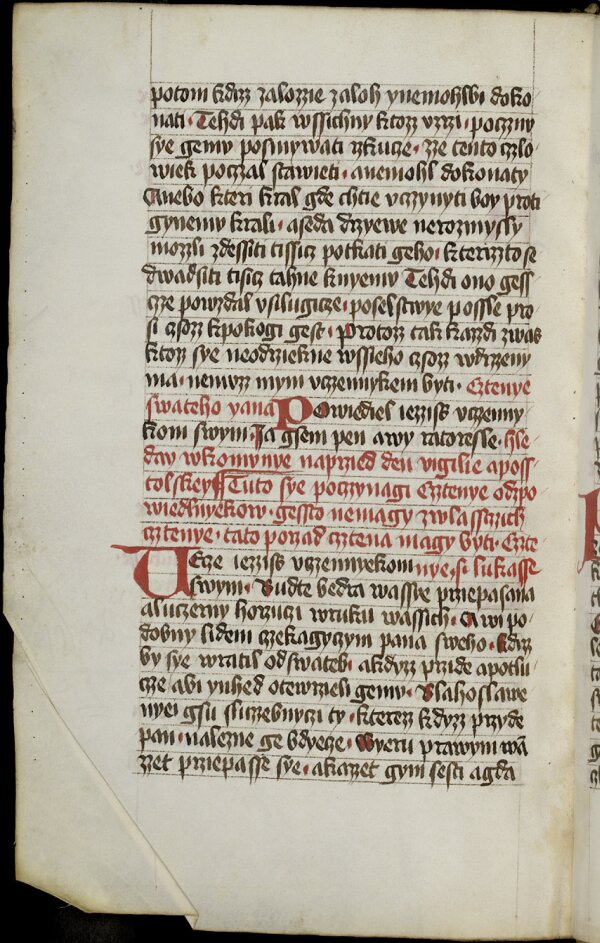 potom kdyz zalozzie zaloh ynemohlbi doko
nati · Tehdi pak wssichny ktozz vzrzi · poczny
sye gemu posmywati rzkucze · ze tento czlo
wiek poczal stawieti · anemohl dokonaty
Anebo kteri kral gde chtie vczynyti boy proti
gynemu krali · aseda drzyewe nerozmysly
mozli zdessiti tissicz potkati geho · kterizto se
dwadsiti tisicz tahne knyemu Tehdi ono gess
cze powzdal vsilugicze · poselstwye possle pro
si czozz kpokogi gest · Protozz tak kazdi zwas
ktozz sye neodrziekne wssieho czozz wdrzeny
ma · nemuzz mym vczennykem byti · Cztenye
swateho yana Powiediel ieziss vczenny
kom swym · Ja gsem pen awy ratoresle · hle
day wkomunye naprzied den vigilie aposs
tolskey Tuto sye poczynagi Cztenye odzpo
wiednykow · gessto nemagy zwlasstich
cztenye · tato porzad cztena magy byti · Czte
Vecze ieziss vczennyekom nye · s · lukasse
swym · Budte bedra wassye przepasana
aluczerny horzuczi wruku wassich · A wi po
dobny lidem czekagyczym pana sweho · kdiz
by sye wratil odswatebi · akdyz przide apotlu
cze abi ynhed otewrzieli gemu · Blahoslawe
nyei gsu sluzebnyczi ty · kterez kdyz przyde
pan · nalezne ge bdyecze · Wyeru prawym wam
zet przepasse sye · akazet gym sesti agda